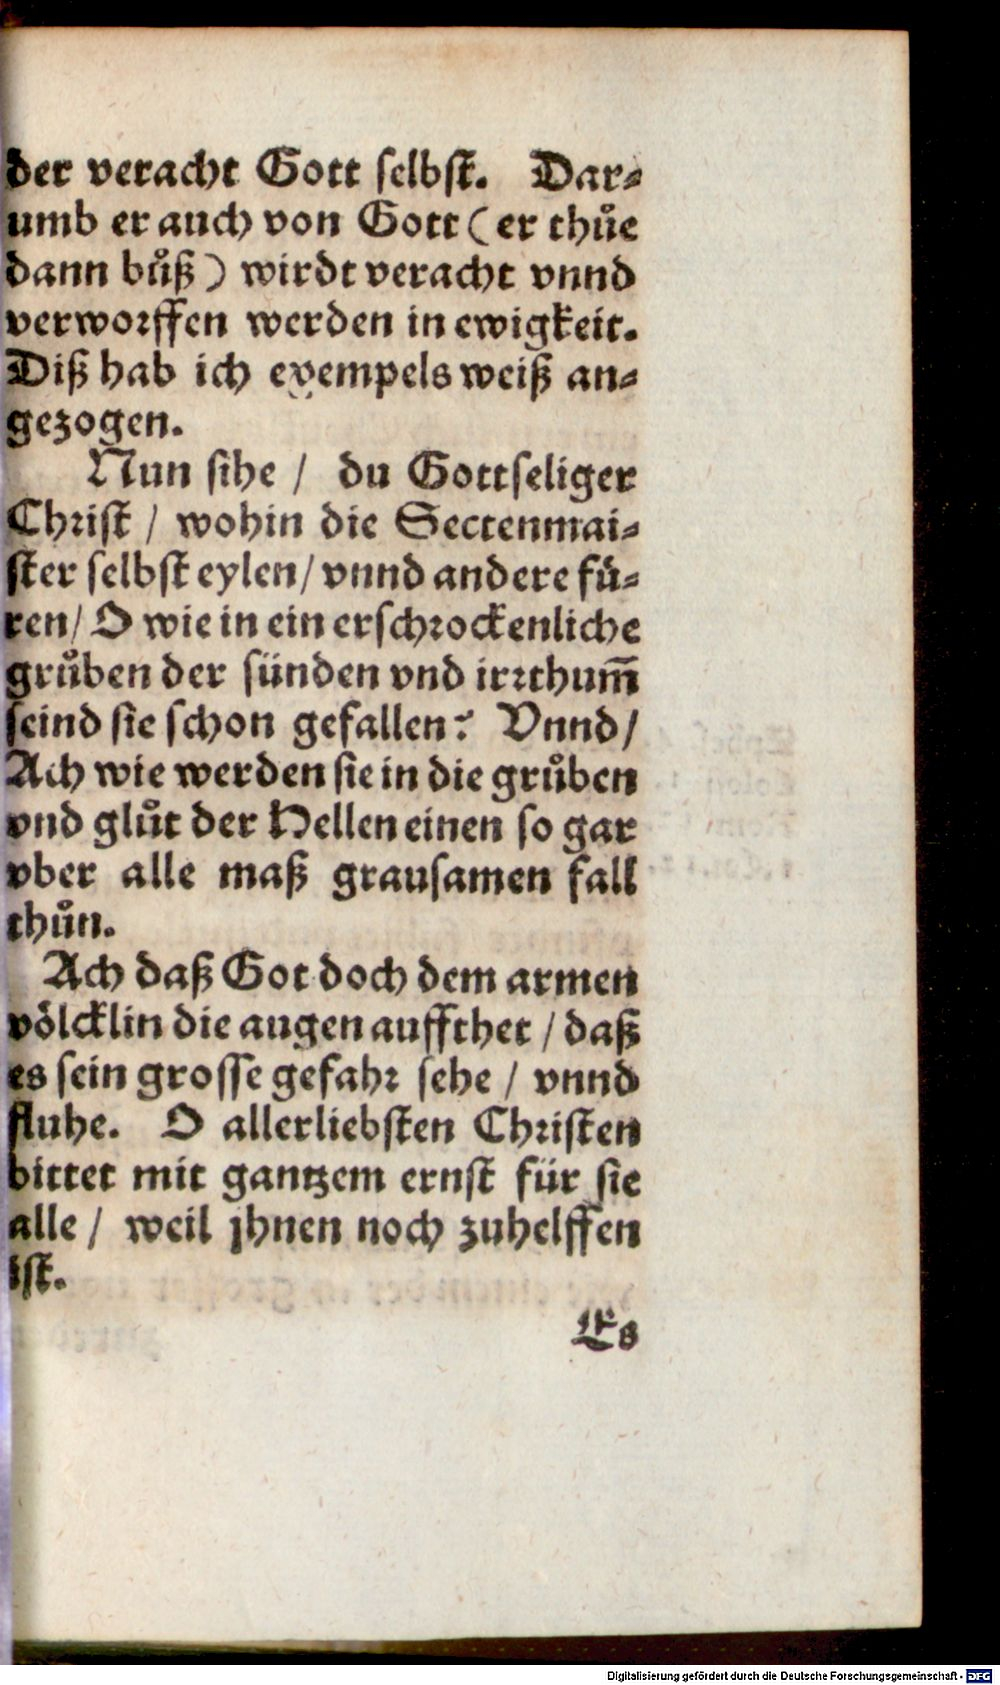 der veracht Gott selbst. Dar-
umb er auch von Gott (er thuͦe
dann buͦß) wirdt veracht vnnd
verworffen werden in ewigkeit.
Diß hab ich exempels weiß an-
gezogen.
Nun sihe / du Gottseliger
Christ / wohin die Sectenmai-
ster selbst eylen / vnnd andere fuͤ-
ren / O wie in ein erschrockenliche
gruͦben der sünden vnd irrthum̃
seind sie schon gefallen? Vnnd /
Ach wie werden sie in die gruͦben
vnd gluͦt der Hellen einen so gar
vber alle maß grausamen fall
thuͦn.
Ach daß Got doch dem armen
voͤlcklin die augen auffthet / daß
es sein grosse gefahr sehe / vnnd
fluhe. O allerliebsten Christen
bittet mit gantzem ernst für sie
alle / weil jhnen noch zuhelffen
ist.
Es
Digitalisierung gefördert durch die Deutsche Forschungsgemeinschaft - DFG